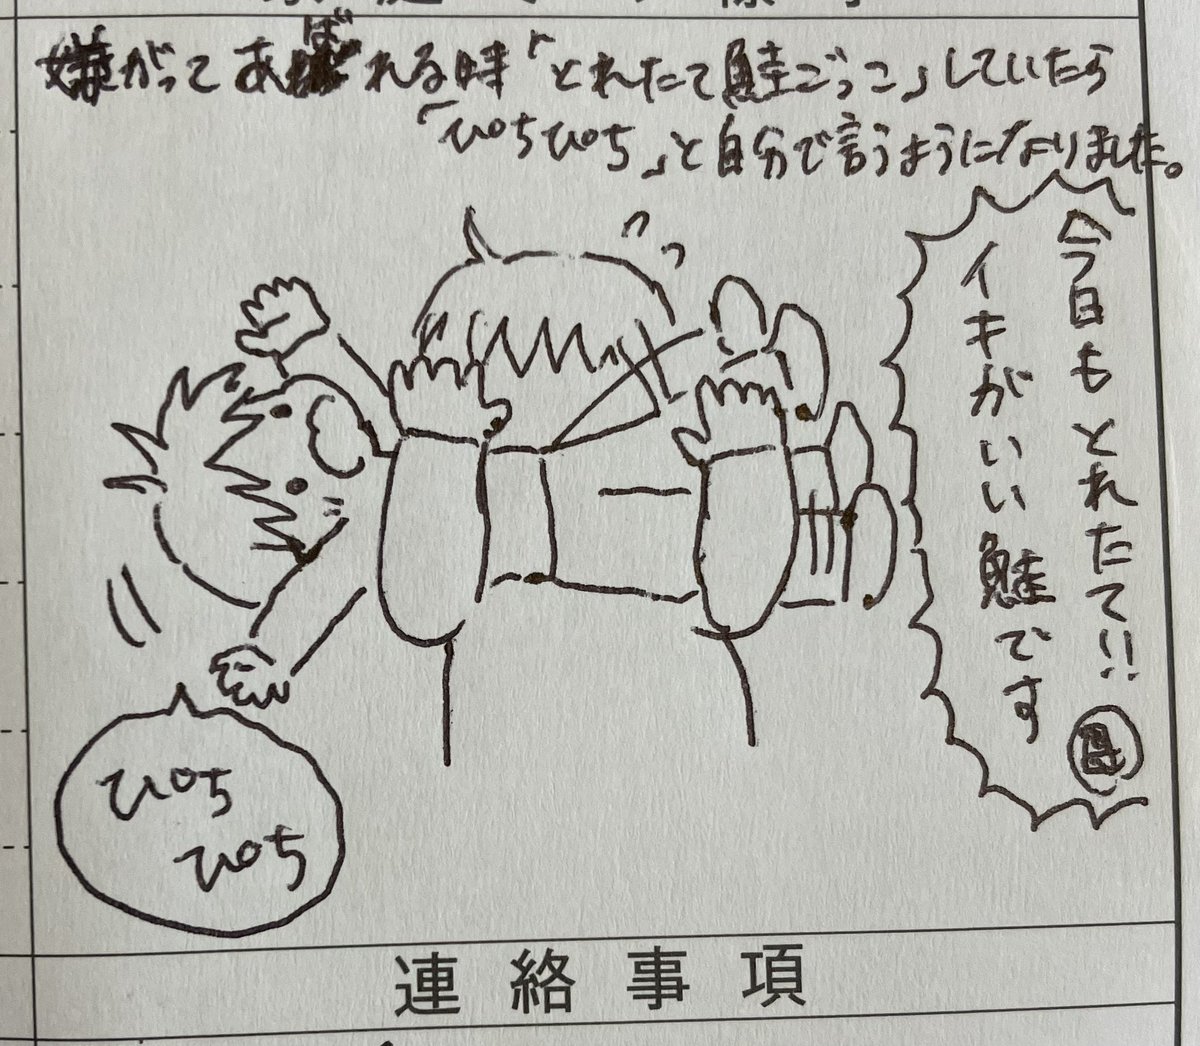 嫌がってあばれる時「とれたて鮭ごっこ」していたら
「ぴちぴち」と自分で言うようになりました。
今日もとれたて!!
イキがいい鮭です
母
ぴち
ぴち
連絡事項